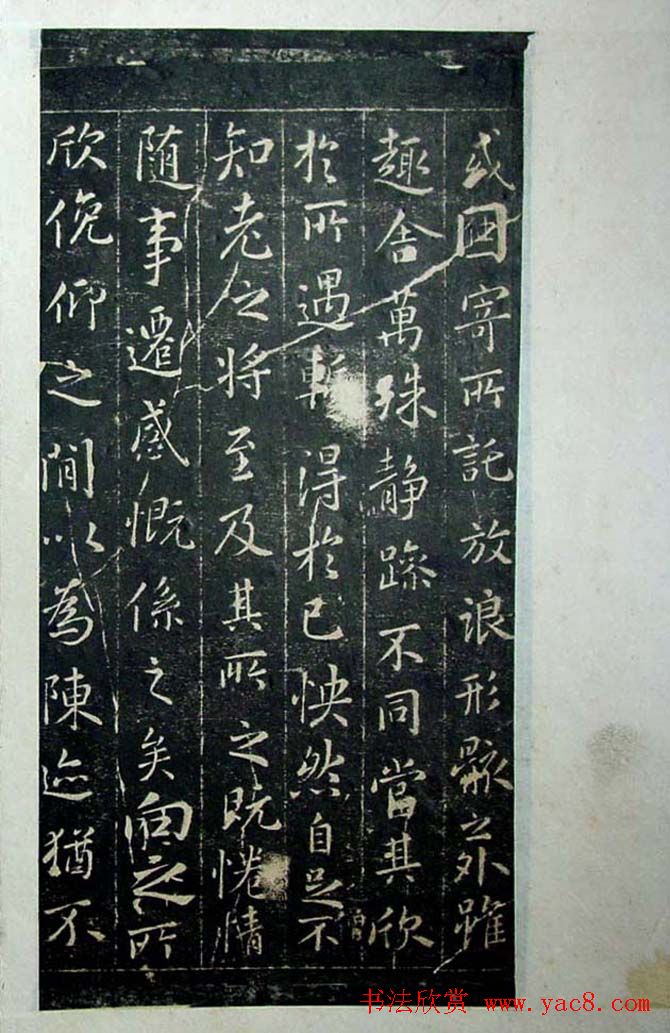 或因寄所託放浪形骸之外雖
趣舍萬殊静躁不同當其欣
於所遇暫得於己怏然自足不
知老之將至及其所之既惓情
随事遷感慨係之矣向之所
欣俛仰之間以為陳迹猶不
僧
书法欣赏 www.yac8.com